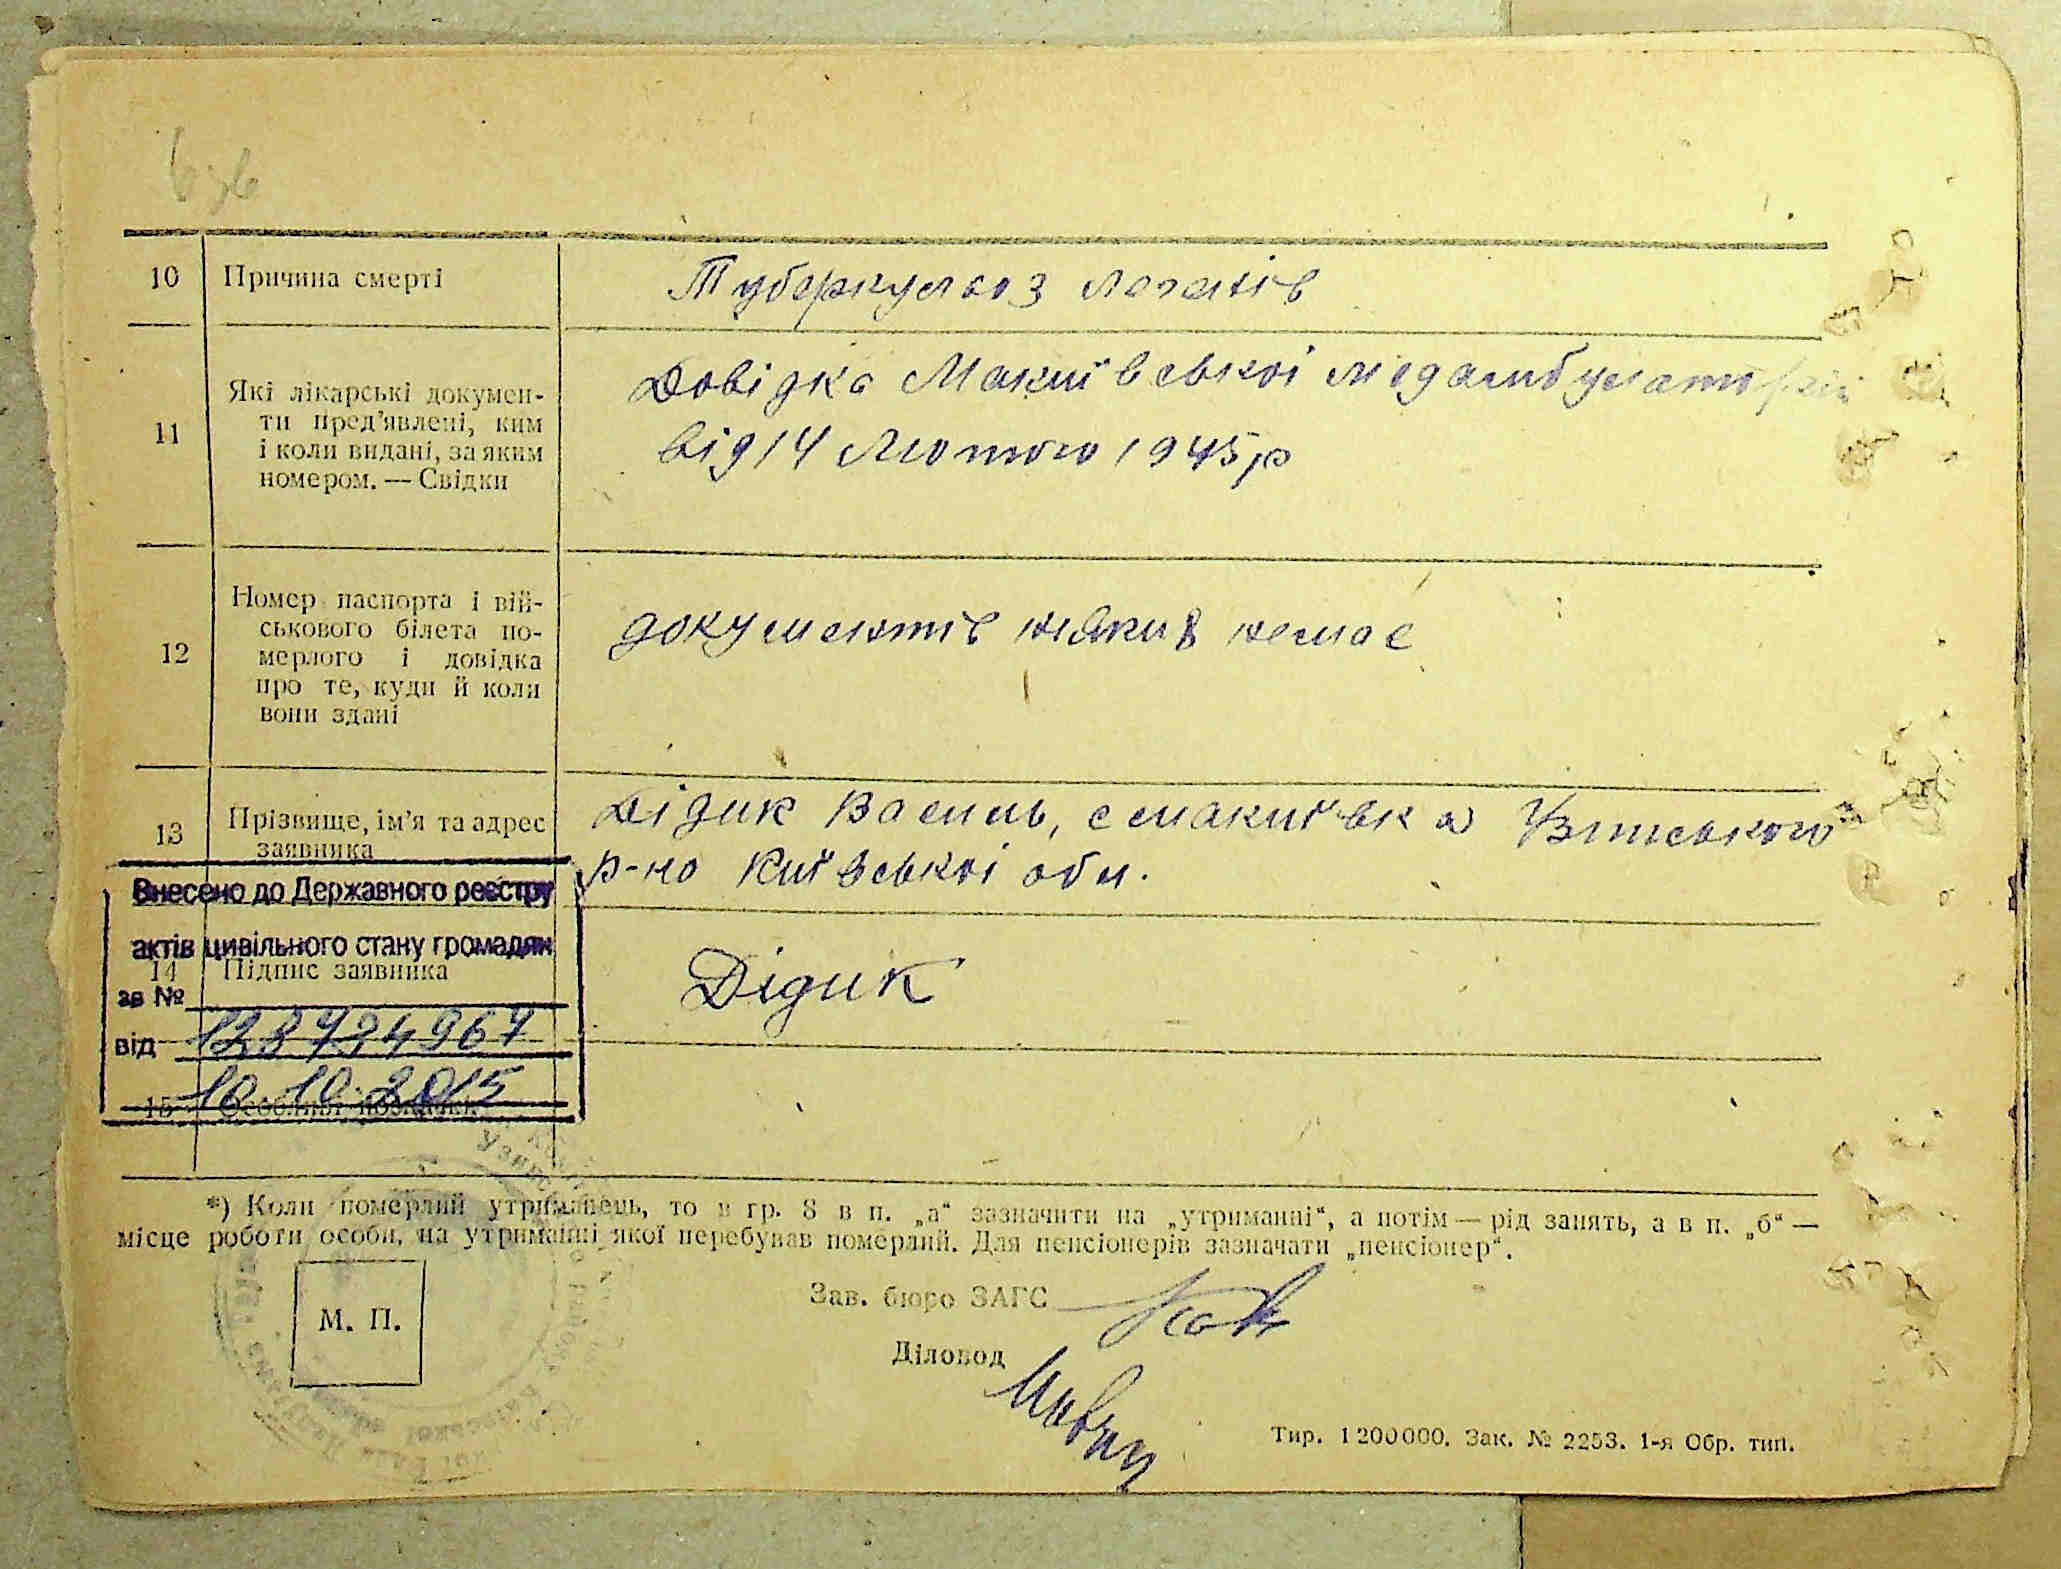 10 Причина смерті
Туберкульоз легенів
11 Які лікарські докумен-
ти пред'явлені, ким
і коли видані, за яким
номером. — Свідки
Довідка Макиївської медамбулаторії
від 14 Лютого 1945 р
12 Номер паспорта і вій-
ськового білета по-
мерлого і довідка
про те, куди й коли
вони здані
документів ніяких немає
13 Прізвище, ім'я та адрес
заявника
Дідик Василь, с макиївка Узинського
р-но Київської обл.
Внесено до Державного реєстру
актів цивільного стану громадян
14 Підпис заявника
Дідик
за №
128794967
від
10.10.2015
15 Особливі
*) Коли померлий утриманець, то в гр. 8 в п. „а“ зазначити на „утриманні“, а потім — рід занять, а в п. „б“ —
місце роботи особи, на утриманні якої перебував померлий. Для пенсіонерів зазначати „пенсіонер“.
М. П.
Зав. бюро ЗАГС
Діловод
Тир. 1200000. Зак. № 2253. 1-я Обр. тип.